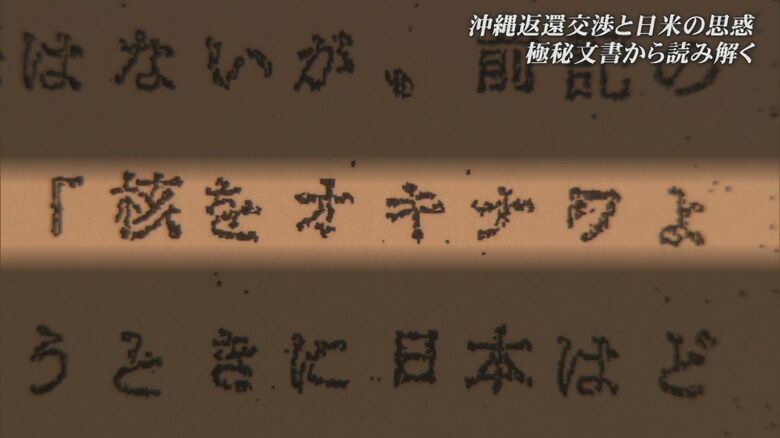 沖縄返還交渉と日米の思惑
極秘文書から読み解く
はないが。前記の
「核をオキナワよ
うときに日本はど